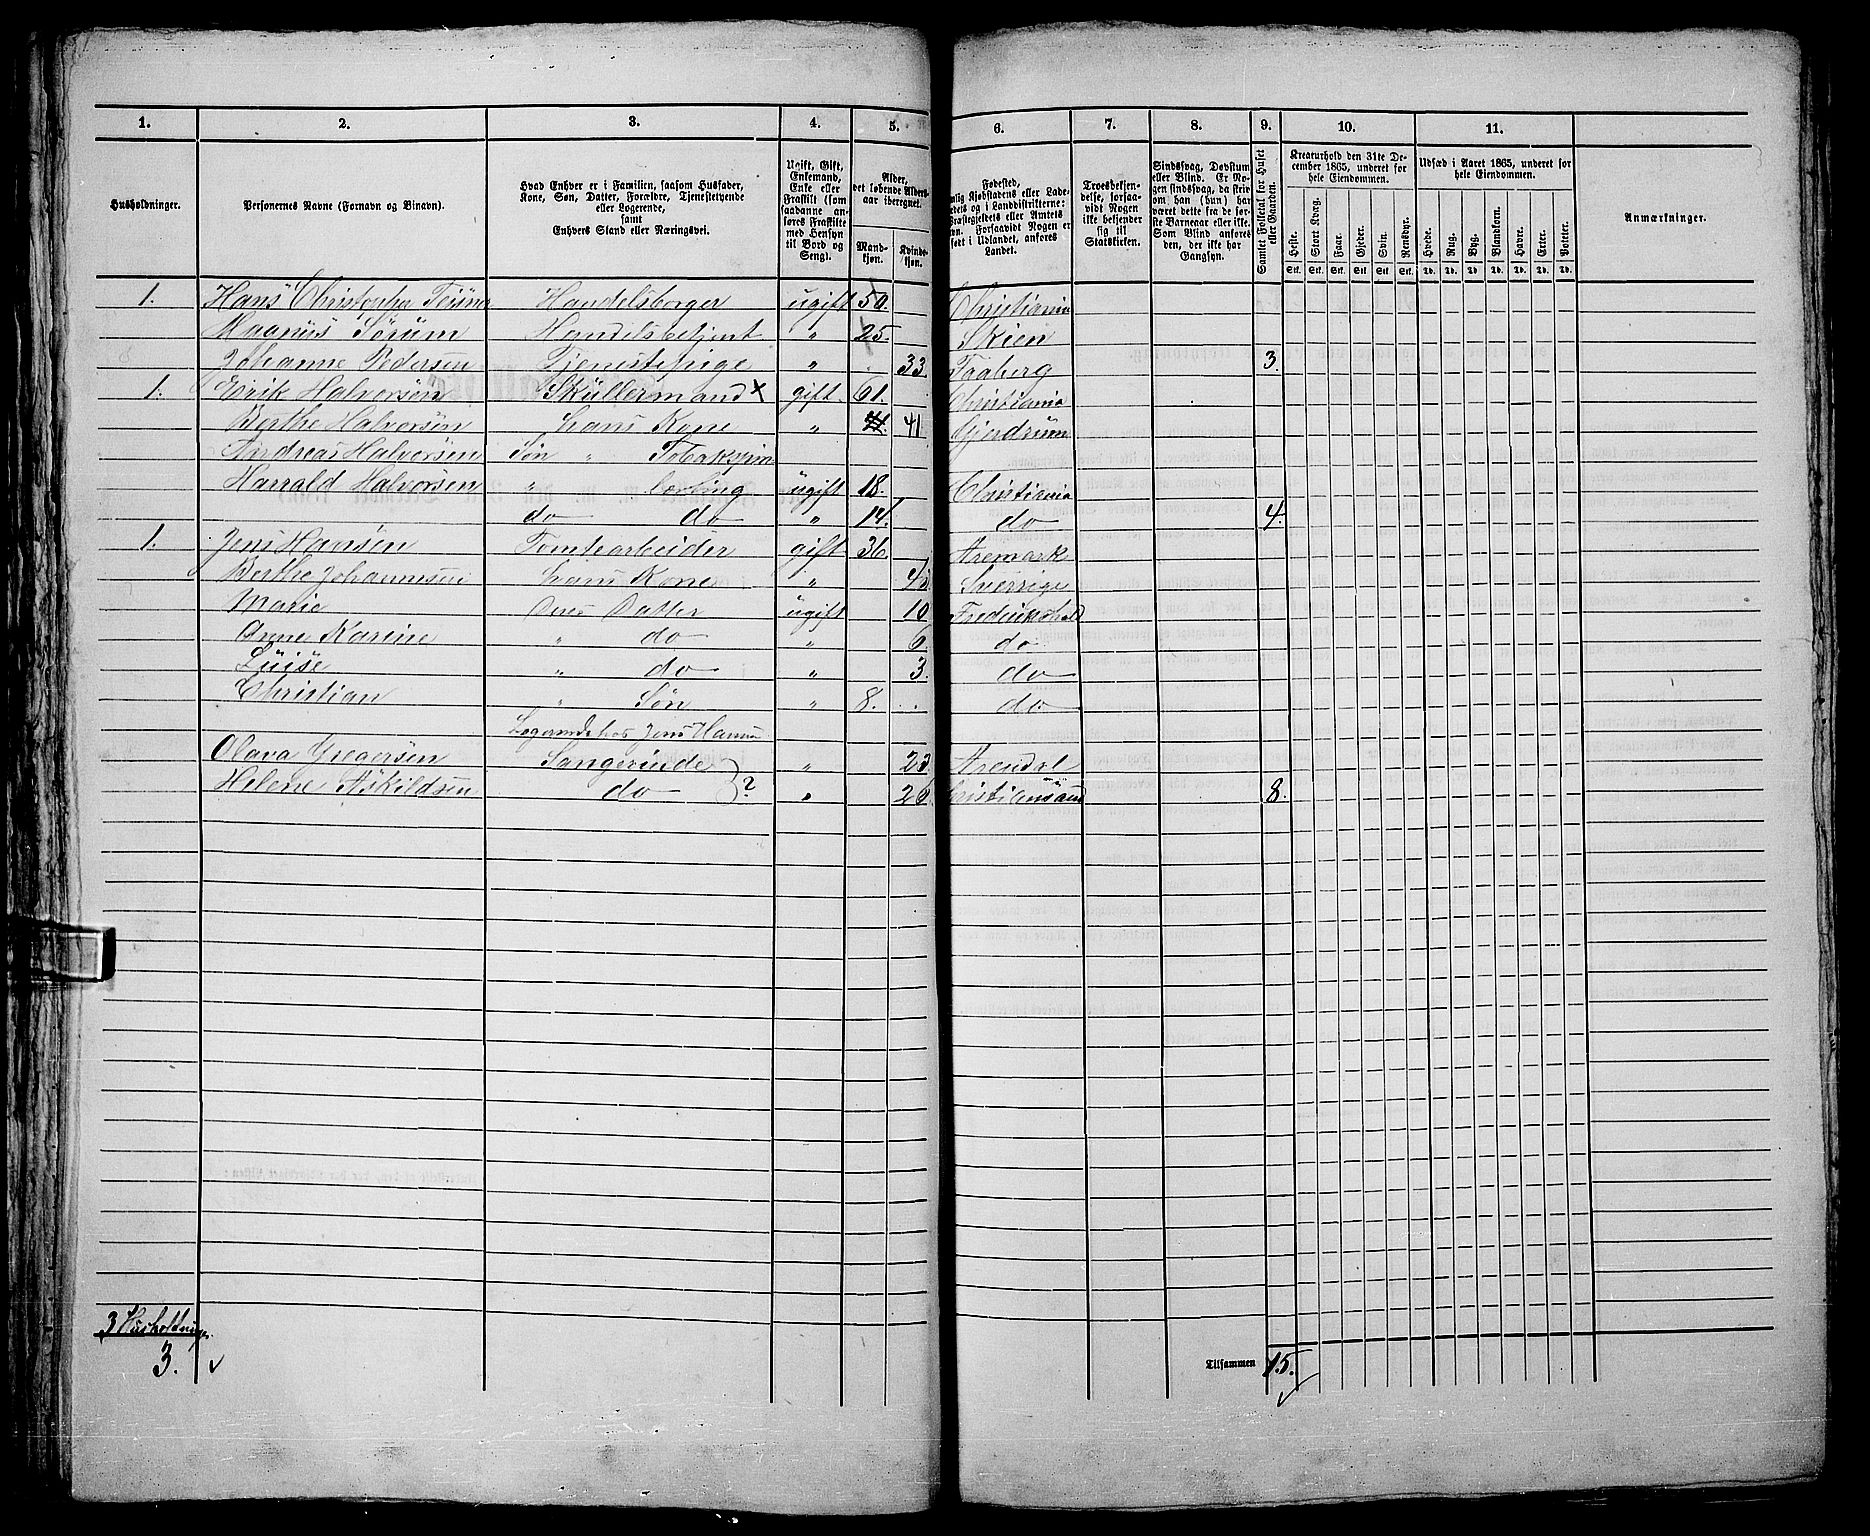 1. 2. 3. 4. 5. 6. 7. 8. 9. 10. 11.
Husholdninger.
Personernes Navne (Fornavn og Binavn).
Hvad Enhver er i Familien, saasom Husfader,
Kone, Søn, Datter, Forældre, Tjenestetyende
eller Logerende,
samt
Enhvers Stand eller Næringsvei.
Ugift, Gift,
Enkemand,
Enke eller
Fraskilt (som
saadanne an-
føres Fraskilte
med Hensyn
til Bord og
Seng).
Alder,
det løbende Alders-
aar iberegnet.
Mand-
kjøn.
Kvinde-
kjøn.
Fødested,
Troesbekjen-
delse, forsaa-
vidt Nogen
ikke bekjender
sig til
Statskirken.
Sindssvag, Døvstum
eller Blind. Er No-
gen sindssvag, da skriv
om han (hun) har
været dette fra de før-
ste Barneaar eller ikke.
Som Blind anføres
den, der ikke har
Gangsyn.
Samlet Folketal for Huset
eller Gaarden.
Kreaturhold den 31te De-
cember 1865, underet for
hele Eiendommen.
Heste. Stort Kvæg. Faar. Gjeder. Svin. Rensdyr.
Stk. Stk. Stk. Stk. Stk. Stk.
Udsæd i Aaret 1865, underet for
hele Eiendommen.
Hvede. Rug. Byg. Blandkorn. Havre. Erter. Poteter.
Td. Td. Td. Td. Td. Td. Td.
Anmærkninger.
1. Hans Christopher Handelsborger ugift 50. Christiania
Magnus Sørum Handelsbetjent " 25. Skien
Johanne Pedersen Tjenestepige " 33 Faaberg 3.
1. Erik Halversen Sküllermand x gift. 61. Christiania
Berthe Halversen hans Kone " 41 Gjerdrum
Andreas Halversen Søn " Tobakspin
Harrald Halversen " lærling ugift 18. Christiania
do do " 14. do 4.
1. Jens Hansen Tomtearbeider gift 36 Aremark
Berthe Johannesen hans Kone " Sverrige
Marie Deres Datter ugift 10 Fredrikshald
Anne Karine " do " 6. do
Luise " do " 3. do
Christian " Søn " 8. do
Logerende hos Jens Hansen
Olava Gregersen Sangerinde " 23 Arendal
Helene Askildsen do ? " 26 Christiansand 8.
3 Husholdninger
3.
Tilsammen 15.